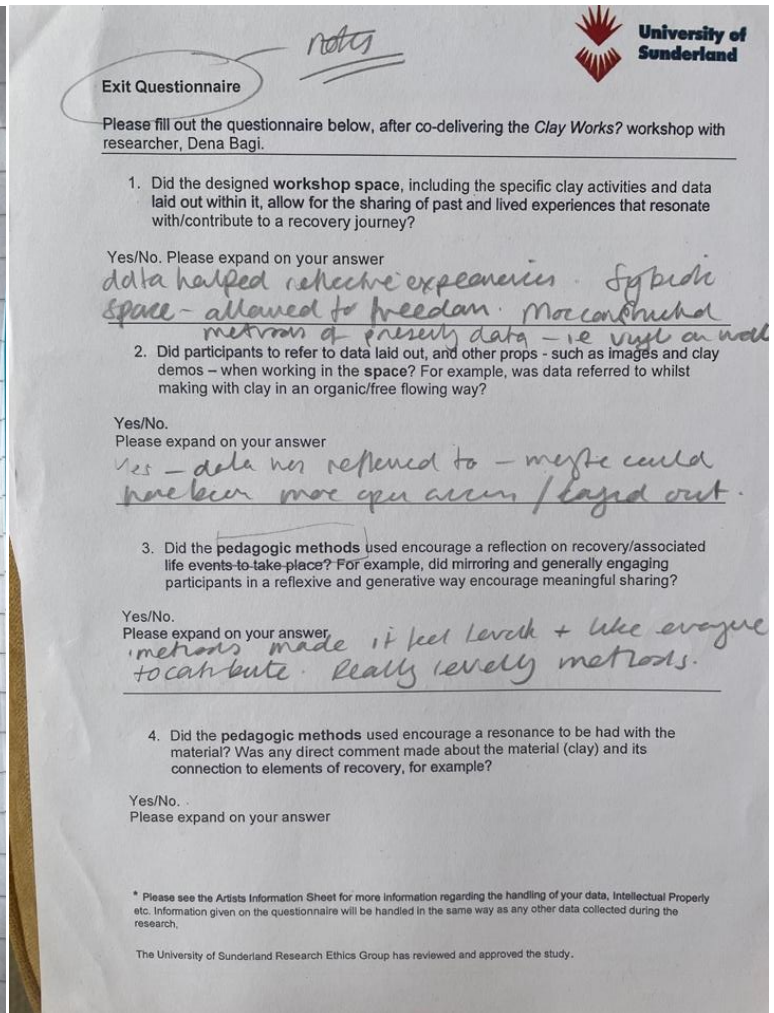 notes
University of
Sunderland
Exit Questionnaire
Please fill out the questionnaire below, after co-delivering the Clay Works? workshop with
researcher, Dena Bagi.
1. Did the designed workshop space, including the specific clay activities and data
laid out within it, allow for the sharing of past and lived experiences that resonate
with/contribute to a recovery journey?
Yes/No. Please expand on your answer
data helped reflective experiences.
space - allowed to freedom. More constructed
methods of presenting data - ie vinyl on wall
2. Did participants to refer to data laid out, and other props - such as images and clay
demos – when working in the space? For example, was data referred to whilst
making with clay in an organic/free flowing way?
Yes/No.
Please expand on your answer
Yes - data was referred to - maybe could
have been more open access / layed out.
3. Did the pedagogic methods used encourage a reflection on recovery/associated
life events to take place? For example, did mirroring and generally engaging
participants in a reflexive and generative way encourage meaningful sharing?
Yes/No.
Please expand on your answer
methods made it feel + like everyone
to contribute. Really methods.
4. Did the pedagogic methods used encourage a resonance to be had with the
material? Was any direct comment made about the material (clay) and its
connection to elements of recovery, for example?
Yes/No.
Please expand on your answer
* Please see the Artists Information Sheet for more information regarding the handling of your data, Intellectual Property
etc. Information given on the questionnaire will be handled in the same way as any other data collected during the
research.
The University of Sunderland Research Ethics Group has reviewed and approved the study.